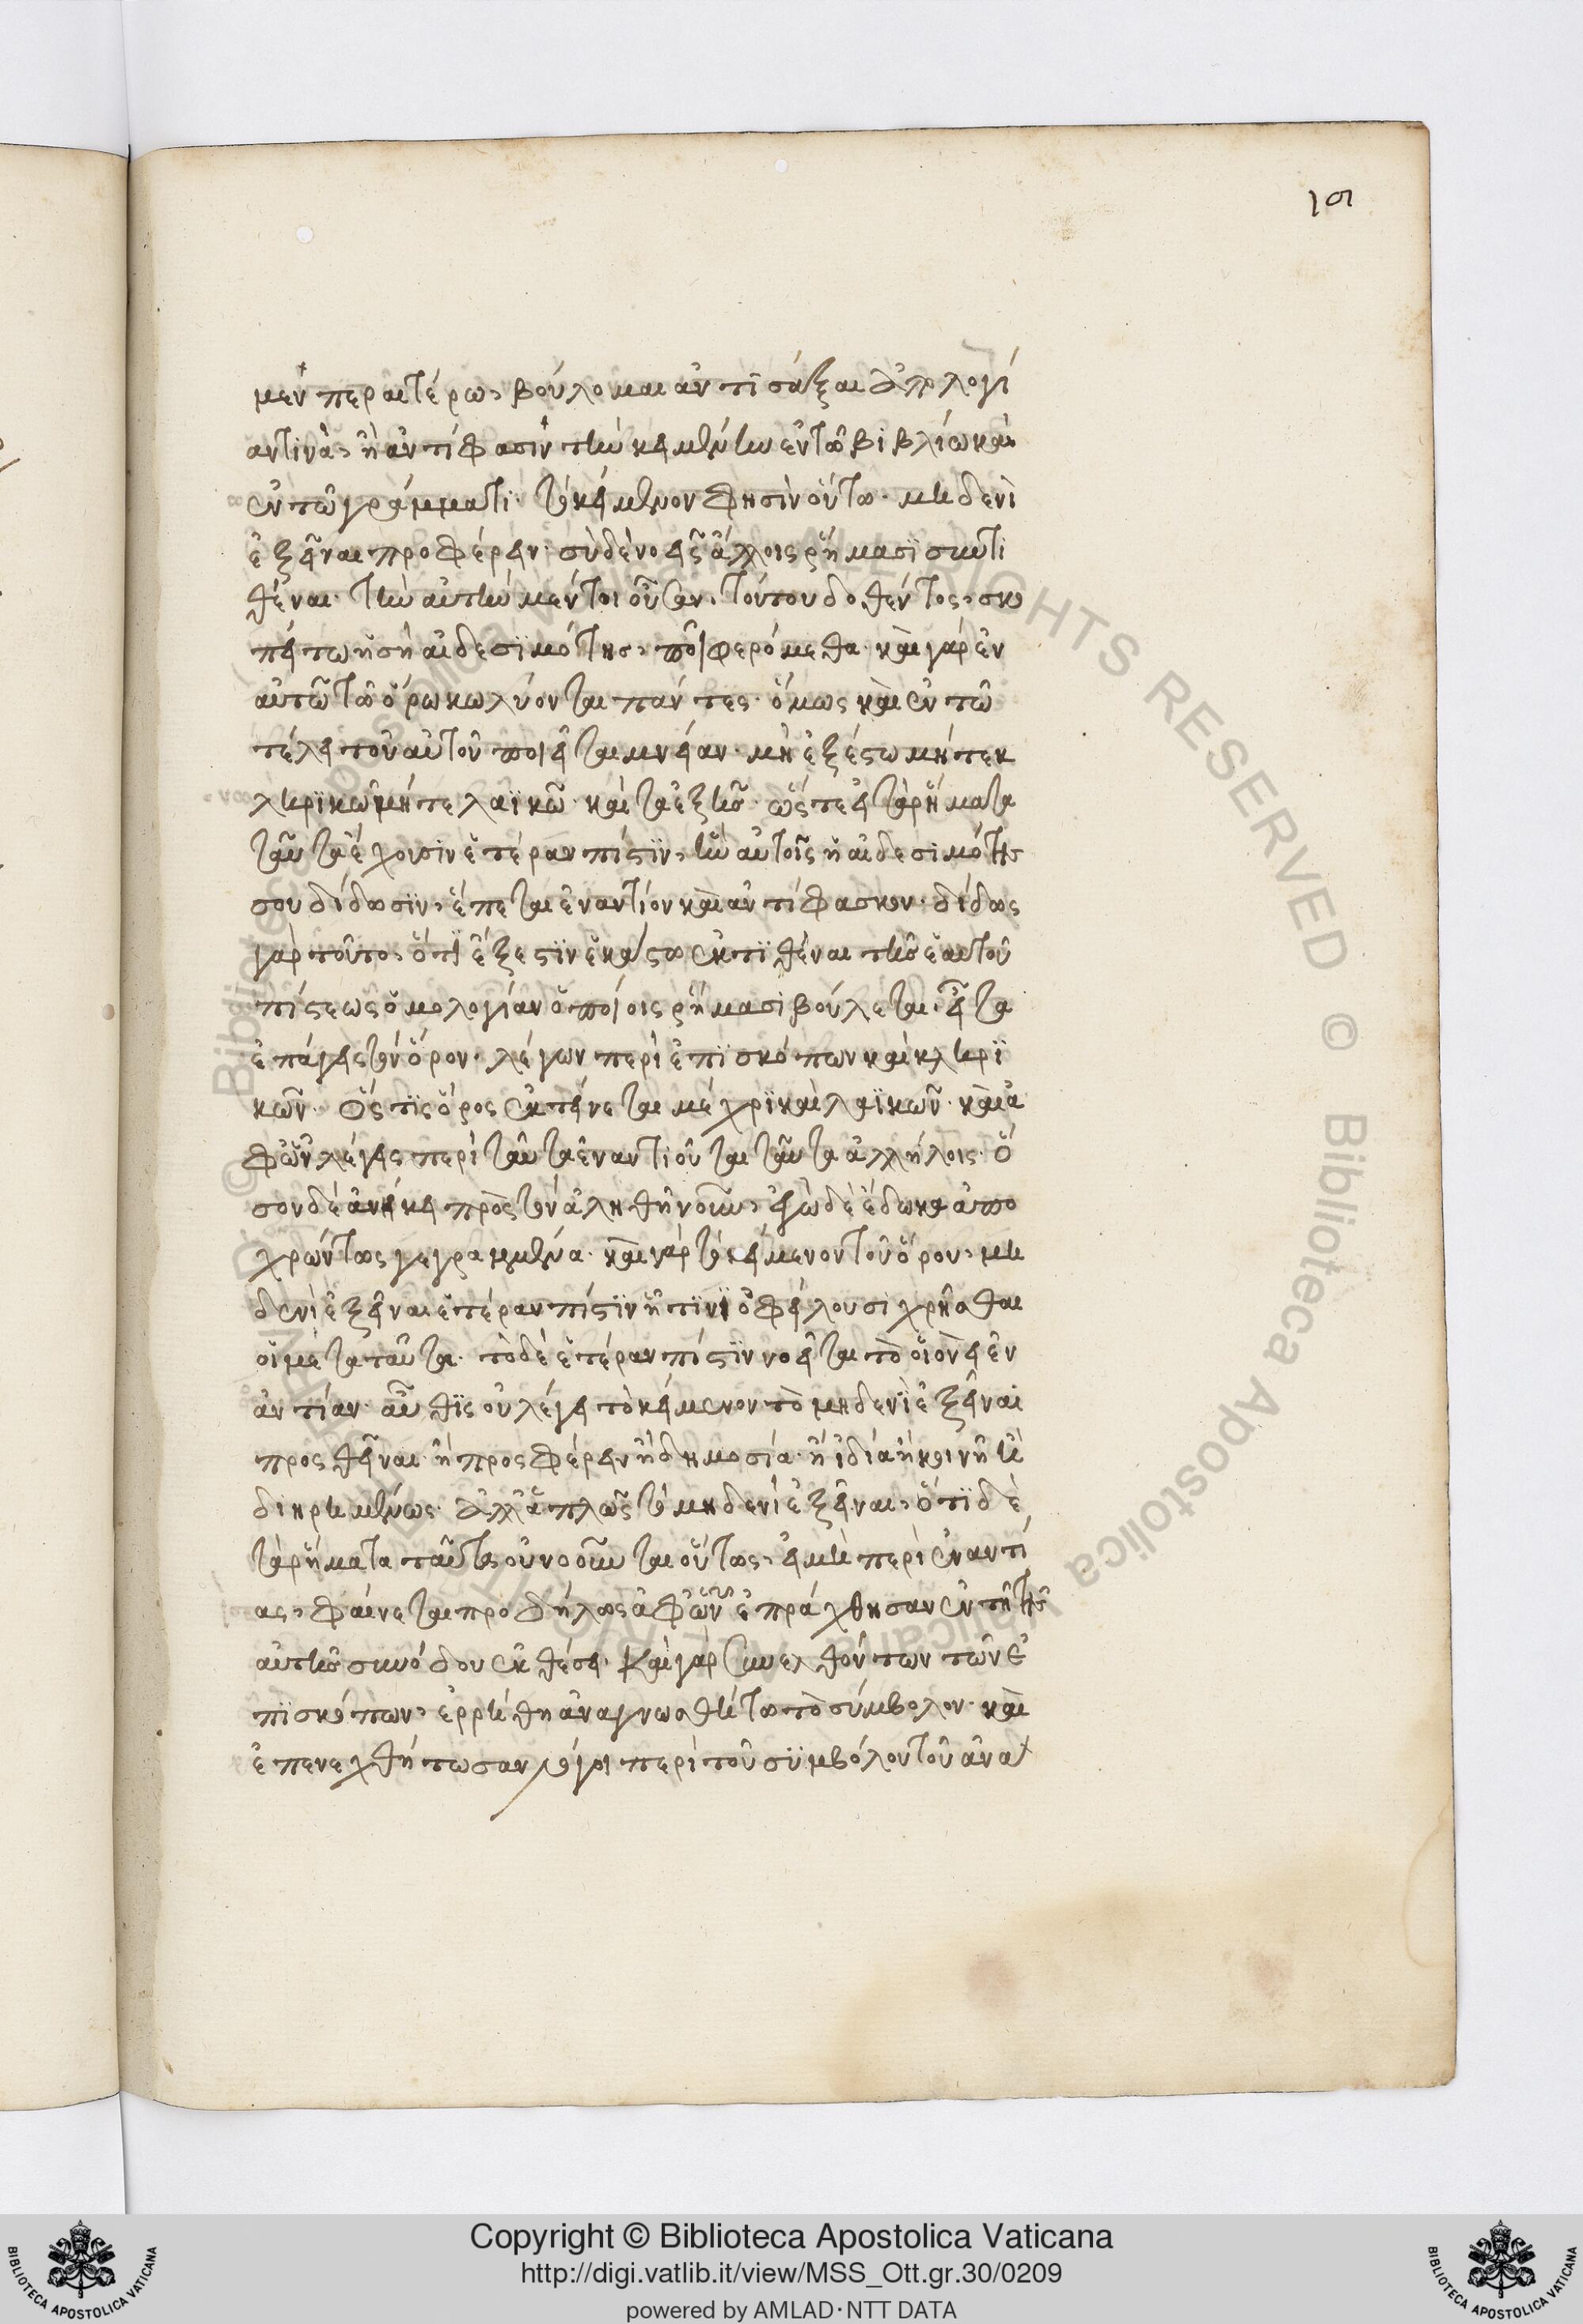 191
μεν περαιτέρω, βούλομαι ἀντιτάξαι ἀπολογί
αν τινὰ, ἢ ἀντίφασιν τὴν κειμένην ἐν τῶ βιβλίω καὶ
ἐν τῶ γράμματι. τὸ κείμενον φησὶν οὕτω. μηδενὶ
ἐξεῖναι προφέρειν ἄλλοις ῥήμασι συντι
θέναι. τὴν αὐτὴν μέντοι τούτου δοθέντος, σκο
πείτω ἡ σὴ αἰδεσιμότης, ποῖ φερόμεθα. καὶ γὰρ ἐν
αὐτῶ τῶ ὅρω κωλύονται πάντες. ὅμως καὶ ἐν τῶ
τέλει τοῦ αὐτοῦ ποιεῖται μνείαν. μὴ ἐξέστω μήτε κ
ληρικῶ μήτε λαϊκῶ. καὶ τὰ ἐξῆς. ὥστε εἰ τὰ ῥήματα
ταῦτα ἔχουσιν ἑτέραν πίστιν, ἣν αὐτοῖς ἡ αἰδεσιμότης
σου δίδωσιν, ἕπεται ἐναντίον καὶ ἀντίφασκον. δίδως
γὰρ τοῦτο, ὅτι ἔξεστιν ἑκάστω ἐκτιθέναι τῆς ἑαυτοῦ
πίστεως ὁμολογίαν ὁποίοις ῥήμασι βούλεται. εἶτα
ἐπάγεις τὸν ὅρον. λέγων περὶ ἐπισκόπων καὶ κληρι
κῶν. Ὅς τις ὅρος ἐκτείνεται μέχρι καὶ λαϊκῶν. καὶ ἀ
φ' ὧν λέγεις περὶ ταῦτα ἐναντιοῦται ταῦτα ἀλλήλοις. ὅ
σον δὲ ἀνείκει πρὸς τὸν ἀληθῆ νοῦν, ἐγὼ δὲ ἔδωκα ἀπο
χρώντως γεγραμμένα. καὶ γὰρ τὸ κείμενον τοῦ ὅρου, μη
δενὶ ἐξεῖναι ἑτέραν πίστιν ᾗτινι ὀφείλουσι χρῆσθαι
οἱ μετὰ ταῦτα. τὸ δὲ ἑτέραν πίστιν νοεῖται τὸ οἱονεὶ ἐν
αντίαν. αὖθις οὐ λέγει τὸ κείμενον τὸ μηδενὶ ἐξεῖναι
προσθεῖναι ἢ προσφέρειν ἢ δημοσία. ἢ ἰδία ἢ κοινῆ ἢ
διηρημένως. ἀλλ' ἁπλῶς τὸ μηδενὶ ἐξεῖναι, ὅτι δὲ
τὰ ῥήματα ταῦτα οὐ νοοῦνται οὕτως, εἰ μὴ περὶ ἐναντί
ας, φαίνεται προδήλως ἀφ' ὧν ἐπράχθησαν ἐν τῆ τῆς
αὐτῆς συνόδου ἐκθέσει. Καὶ γὰρ συνελθόντων τῶν ἐ
πισκόπων, ἐρρήθη ἀναγνωσθήτω τὸ σύμβολον. καὶ
ἐπενεχθήτωσαν λόγοι περὶ τοῦ συμβόλου τοῦ ἀνα
© Biblioteca Apostolica Vaticana
ALL RIGHTS RESERVED
Copyright © Biblioteca Apostolica Vaticana
http://digi.vatlib.it/view/MSS_Ott.gr.30/0209
powered by AMLAD·NTT DATA
BIBLIOTECA APOSTOLICA VATICANA
BIBLIOTECA APOSTOLICA VATICANA